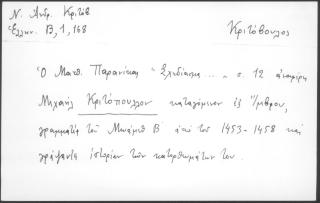 Ν. Ανδρ. Κριτόβ
Ἑλλην. Β, 1, 168
Κριτόβουλος
Ὁ Ματθ. Παρανίκας "Σχεδίασμα ..." σ. 12 ἀναφέρει
Μιχαήλ Κριτόπουλον καταγόμενον ἐξ Ἴμβρου,
γραμματέα τοῦ Μωάμεθ Β ἀπὸ τοῦ 1453-1458 καὶ
γράψαντα ἱστορίαν τῶν κατορθωμάτων του.